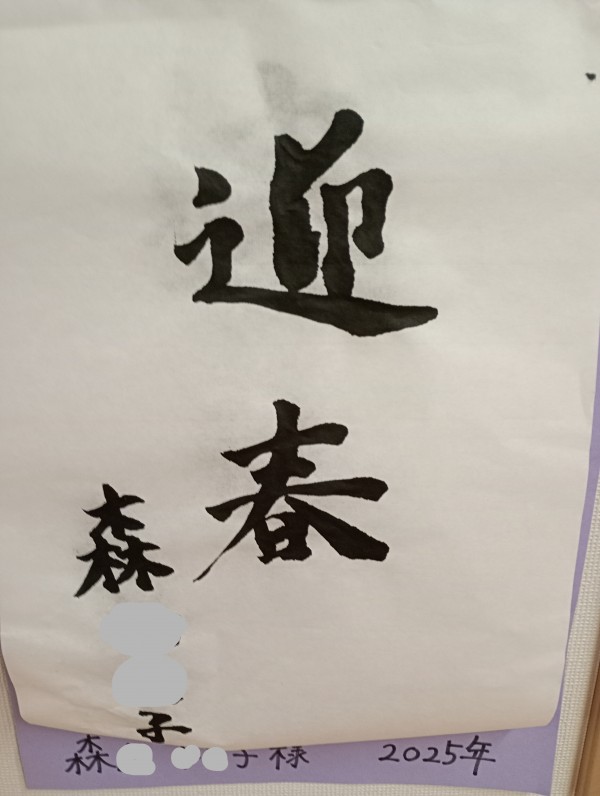 迎春
森 子
森 子様
2025年